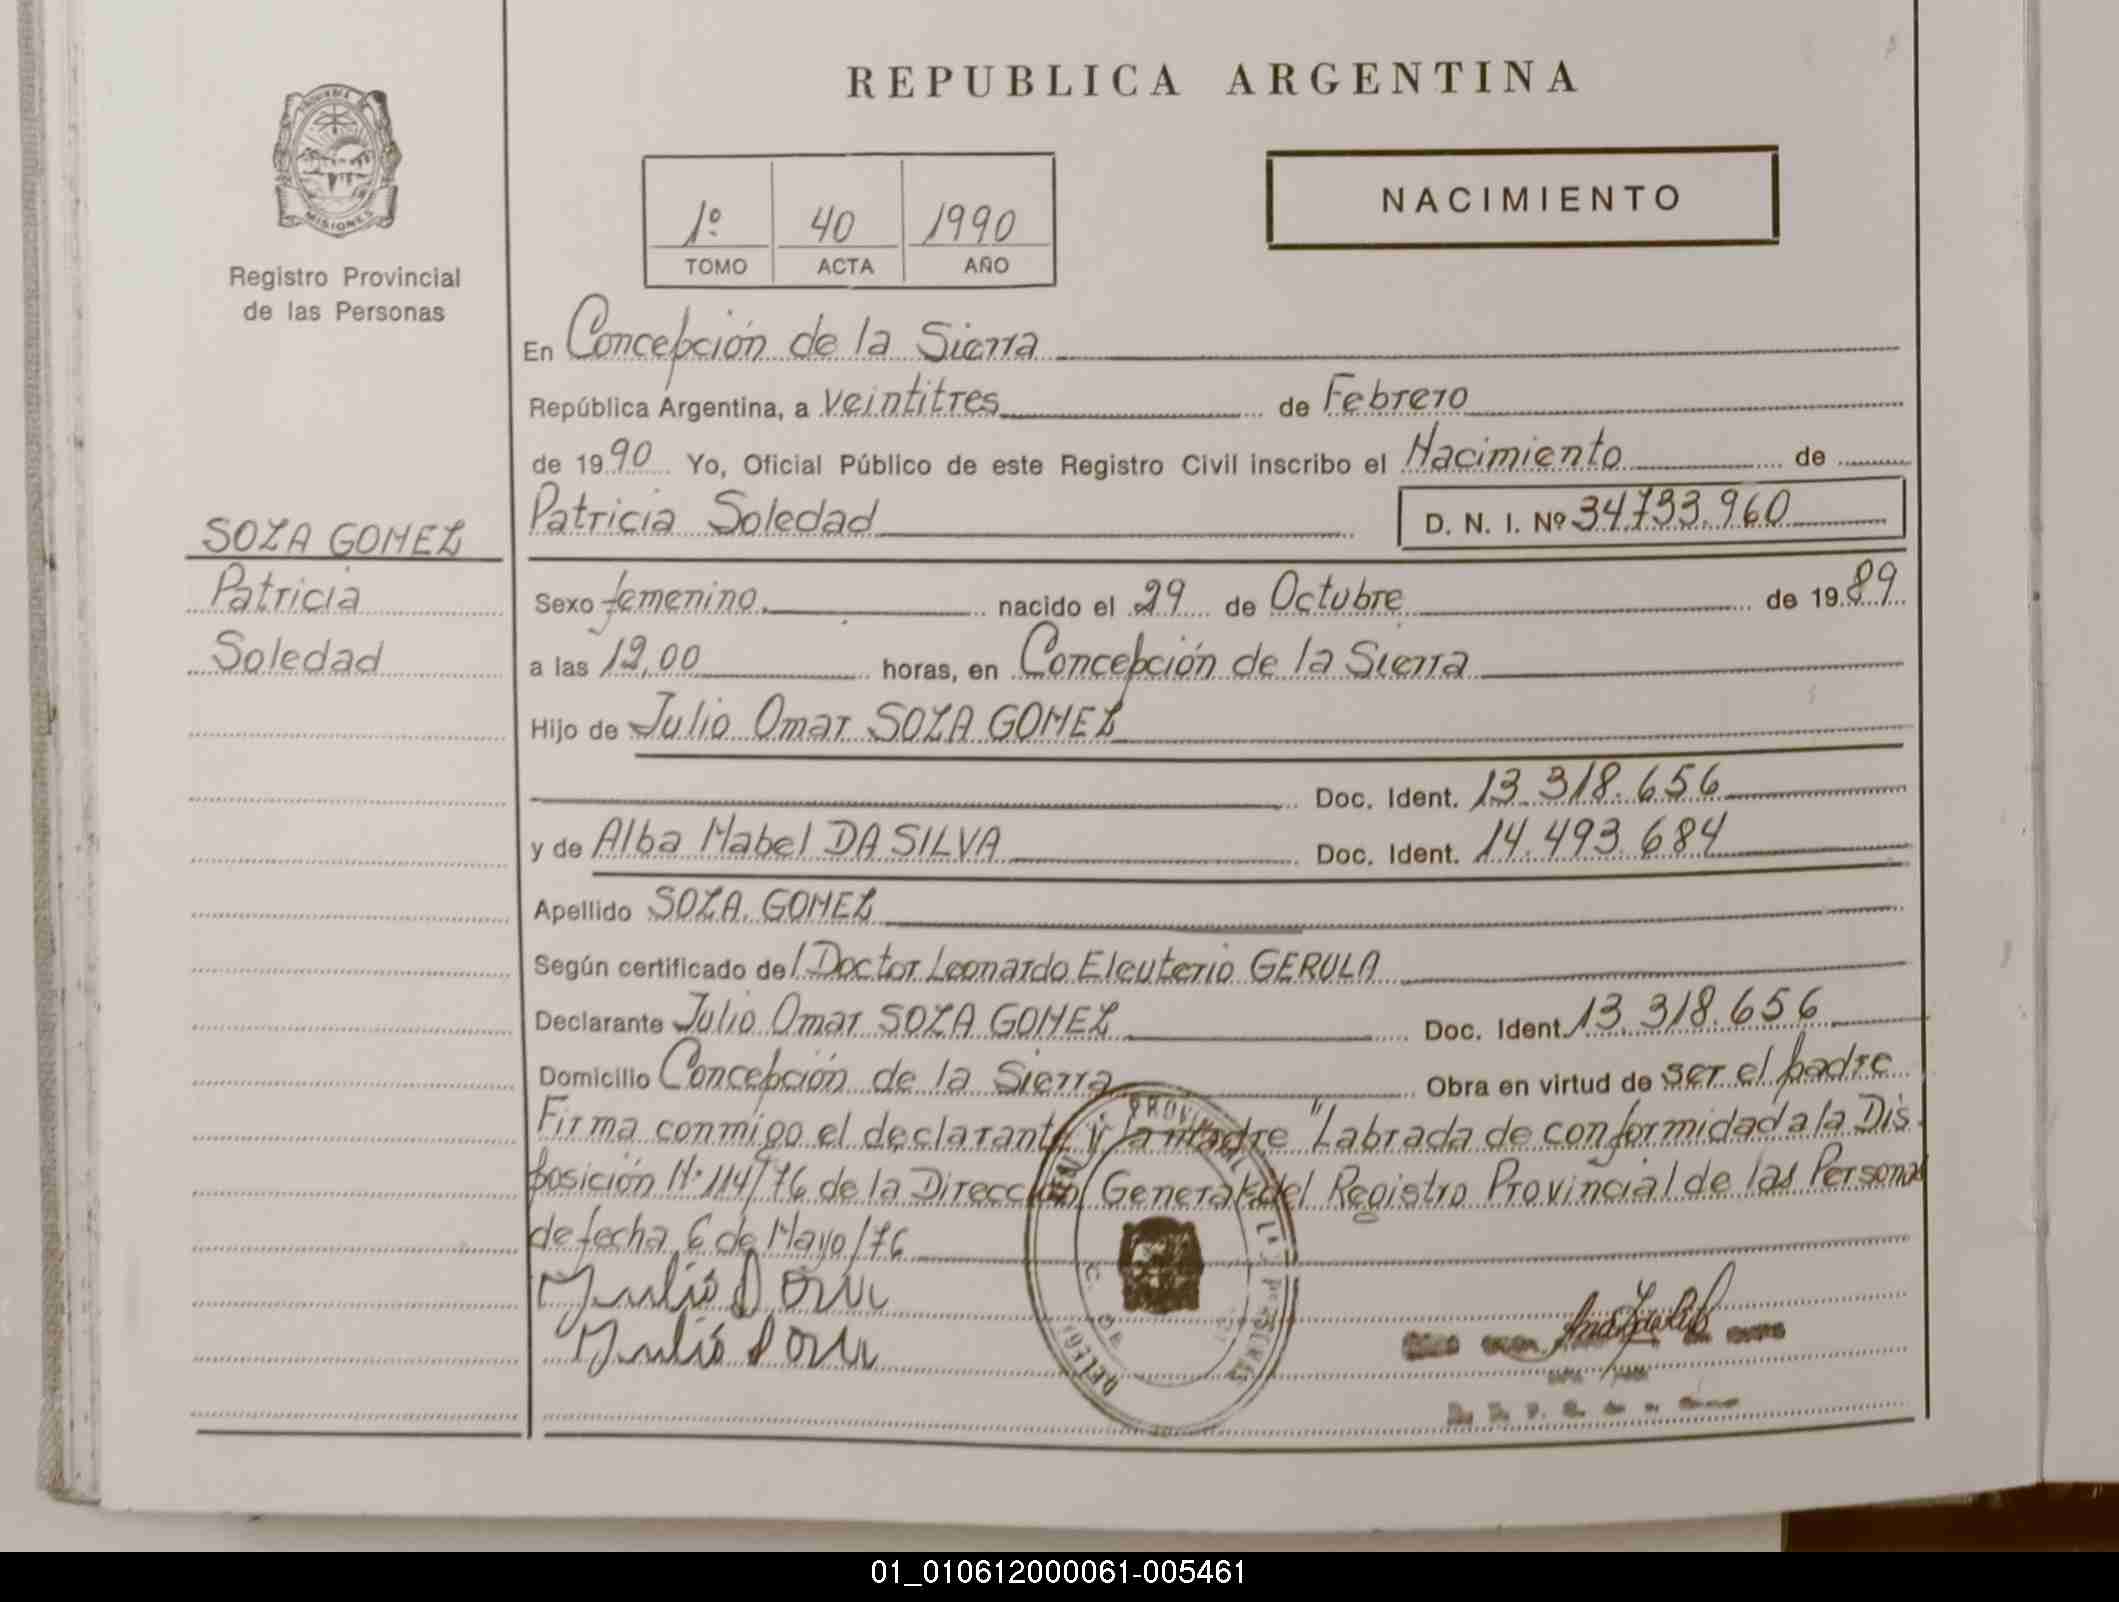 REPUBLICA ARGENTINA
PROVINCIA
MISIONES
Registro Provincial
de las Personas
1º 40 1990
TOMO ACTA AÑO
NACIMIENTO
En Concepción de la Sierra
República Argentina, a veintitres de Febrero
de 1990 Yo, Oficial Público de este Registro Civil inscribo el Nacimiento de
Patricia Soledad D. N. I. Nº 34.733.960
SOZA GOMEZ
Patricia
Soledad
Sexo femenino. nacido el 29 de Octubre de 1989
a las 12,00 horas, en Concepción de la Sierra
Hijo de Julio Omar SOZA GOMEZ
Doc. Ident. 13.318.656
y de Alba Mabel DA SILVA Doc. Ident. 14.493.684
Apellido SOZA GOMEZ
Según certificado del Doctor Leonardo Eleuterio GERULA
Declarante Julio Omar SOZA GOMEZ Doc. Ident. 13.318.656
Domicilio Concepción de la Sierra Obra en virtud de ser el padre
Firma conmigo el declarante y la madre "Labrada de conformidad a la Dis
posición N° 114/76 de la Dirección General del Registro Provincial de las Personas
de fecha 6 de Mayo/76
01_010612000061-005461